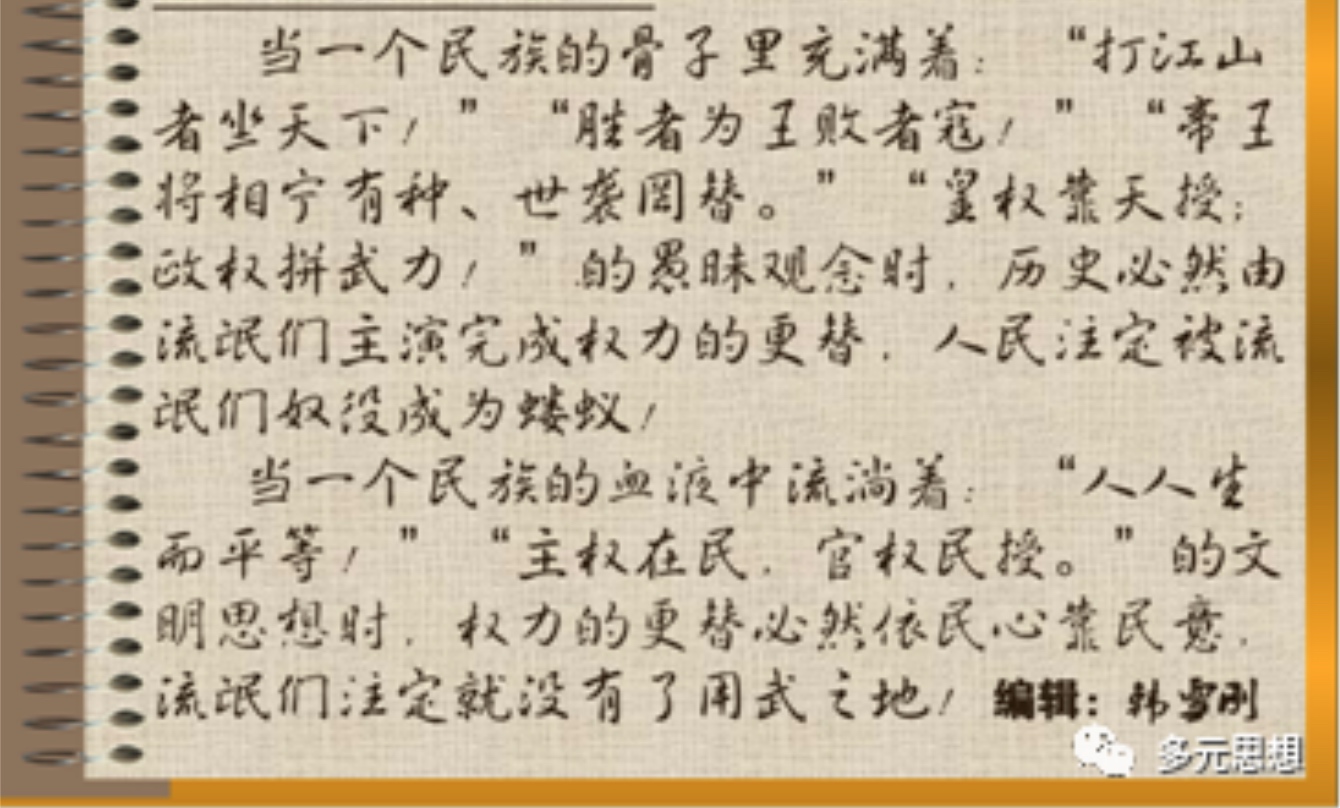 当一个民族的骨子里充满着：“打江山
者坐天下！”“胜者为王败者寇！”“帝王
将相宁有种、世袭罔替。”“皇权靠天授；
政权拼武力！”的愚昧观念时，历史必然由
流氓们主演完成权力的更替，人民注定被流
氓们奴役成为蝼蚁！
当一个民族的血液中流淌着：“人人生
而平等！”“主权在民，官权民授。”的文
明思想时，权力的更替必然依民心靠民意，
流氓们注定就没有了用武之地！编辑：韩雪刚
多元思想